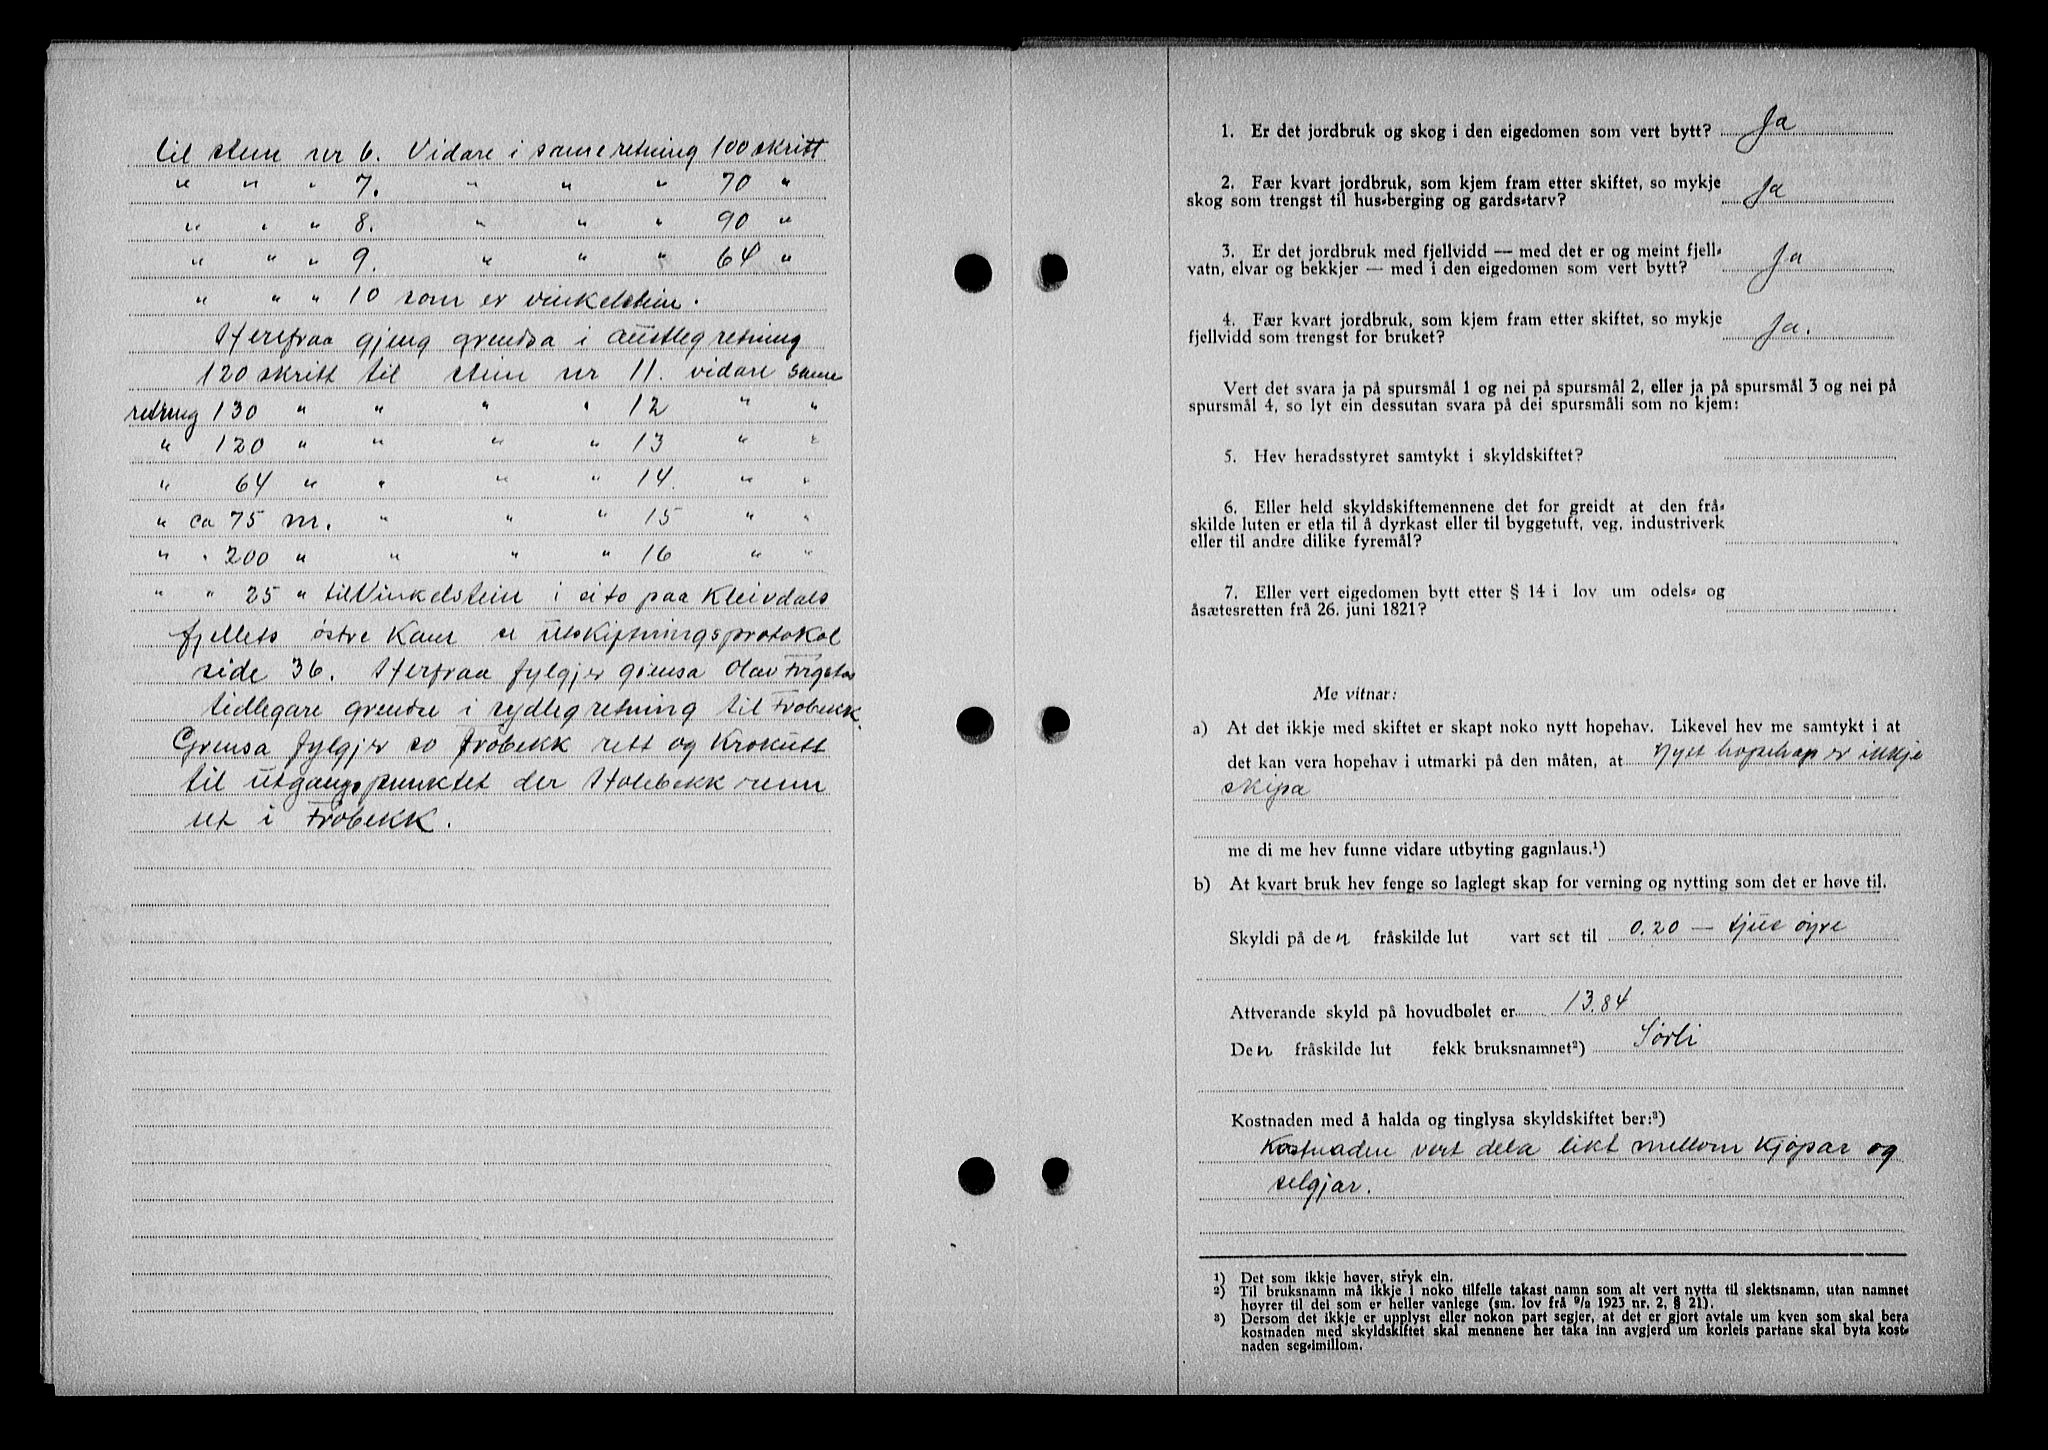 til stein nr 6. Vidare i same retning 100 skritt
" " " 7. " " " 70 "
" " " 8. " " " 90 "
" " " 9. " " " 64 "
" " " 10 som er vinkelstein.
Herifraa gjeng grendsa i austleg retning
120 skritt til stein nr 11. vidare same
retning 130 " " " " 12 " "
" 120 " " " " 13 " "
" 64 " " " " 14. " "
" ca 75 m. " " " 15 " "
" " 200 " " " " 16 " "
" " 25 " til Vinkelstein i paa Kleivdals
fjellets østre Kam se utskiptningsprotokol
side 36. Herfraa fylgjer grensa Olav
tidlegare grendse i sydleg retning til Frobekk.
Grensa fylgjer so Frobekk rett og Krokutt
til utgangspunktet der Holebekk renn
ut i Frobekk.
1. Er det jordbruk og skog i den eigedomen som vert bytt? Ja
2. Fær kvart jordbruk, som kjem fram etter skiftet, so mykje
skog som trengst til hus-berging og gards-tarv? Ja
3. Er det jordbruk med fjellvidd — med det er og meint fjell-
vatn, elvar og bekkjer — med i den eigedomen som vert bytt? Ja
4. Fær kvart jordbruk, som kjem fram etter skiftet, so mykje
fjellvidd som trengst for bruket? Ja.
Vert det svara ja på spursmål 1 og nei på spursmål 2, eller ja på spursmål 3 og nei på
spursmål 4, so lyt ein dessutan svara på dei spursmåli som no kjem:
5. Hev heradsstyret samtykt i skyldskiftet?
6. Eller held skyldskiftemennene det for greidt at den frå-
skilde luten er etla til å dyrkast eller til byggetuft, veg, industriverk
eller til andre dilike fyremål?
7. Eller vert eigedomen bytt etter § 14 i lov um odels- og
åsætesretten frå 26. juni 1821?
Me vitnar:
a) At det ikkje med skiftet er skapt noko nytt hopehav. Likevel hev me samtykt i at
det kan vera hopehav i utmarki på den måten, at Nytt hopehav er ikkje
skipa
me di me hev funne vidare utbyting gagnlaus.¹)
b) At kvart bruk hev fenge so laglegt skap for verning og nytting som det er høve til.
Skyldi på den fråskilde lut vart set til 0.20 — tjue øyre
Attverande skyld på hovudbølet er 13.84
Den fråskilde lut fekk bruksnamnet²) Sørli
Kostnaden med å halda og tinglysa skyldskiftet ber:³)
Kostnaden vert dela likt mellom Kjøpar og
seljar.
¹) Det som ikkje høver, stryk ein.
²) Til bruksnamn må ikkje i noko tilfelle takast namn som alt vert nytta til slektsnamn, utan namnet
høyrer til dei som er heller vanlege (sm. lov frå 9/2 1923 nr. 2, § 21).
³) Dersom det ikkje er upplyst eller nokon part segjer, at det er gjort avtale um kven som skal bera
kostnaden med skyldskiftet skal mennene her taka inn avgjerd um korleis partane skal byta kost-
naden seg-imillom.